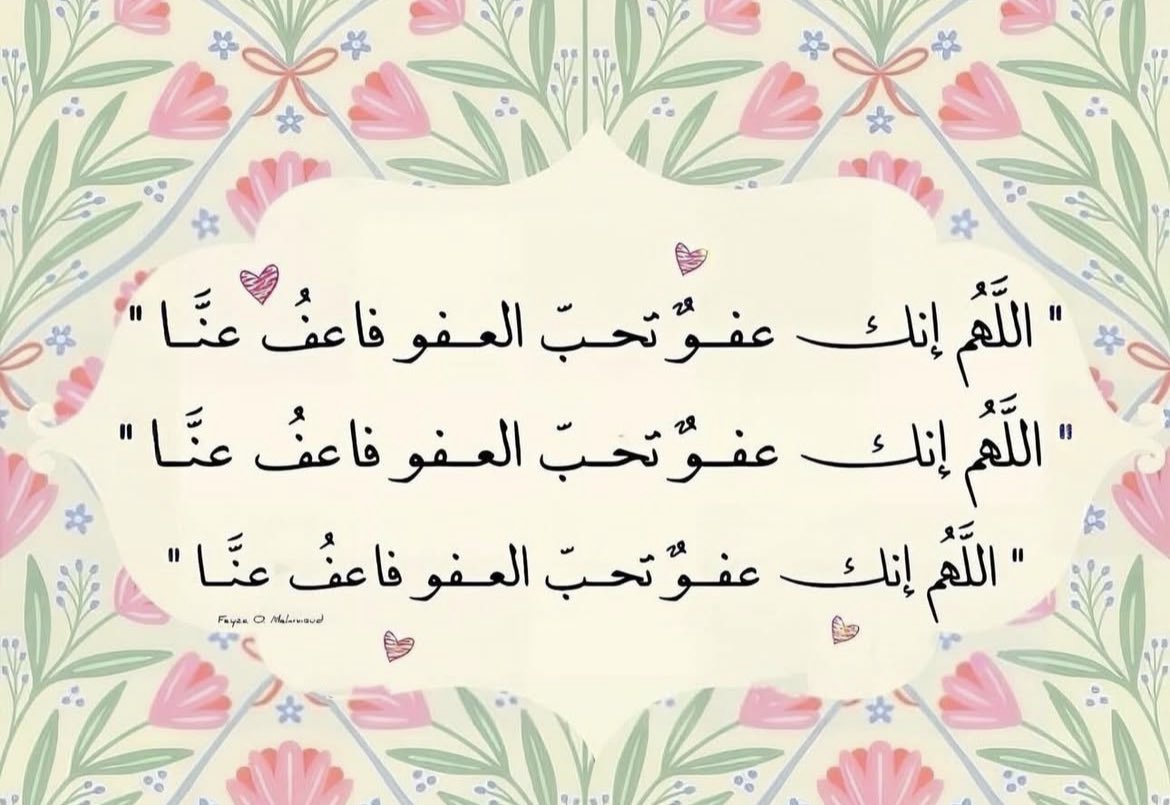 " اللَّهُم إنك عفوٌ تحبّ العفو فاعفُ عنَّا "
" اللَّهُم إنك عفوٌ تحبّ العفو فاعفُ عنَّا "
" اللَّهُم إنك عفوٌ تحبّ العفو فاعفُ عنَّا "
Fayza O. Mahmoud